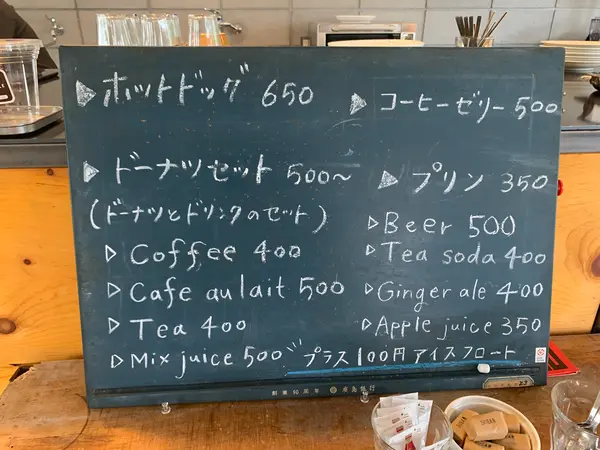 ▶ホットドッグ 650
▶コーヒーゼリー 500
▶ドーナツセット 500~
(ドーナツとドリンクのセット)
▶プリン 350
▷Coffee 400
▷Cafe au lait 500
▷Tea 400
▷Mix juice 500
▷Beer 500
▷Tea soda 400
▷Ginger ale 400
▷Apple juice 350
プラス100円アイスフロート